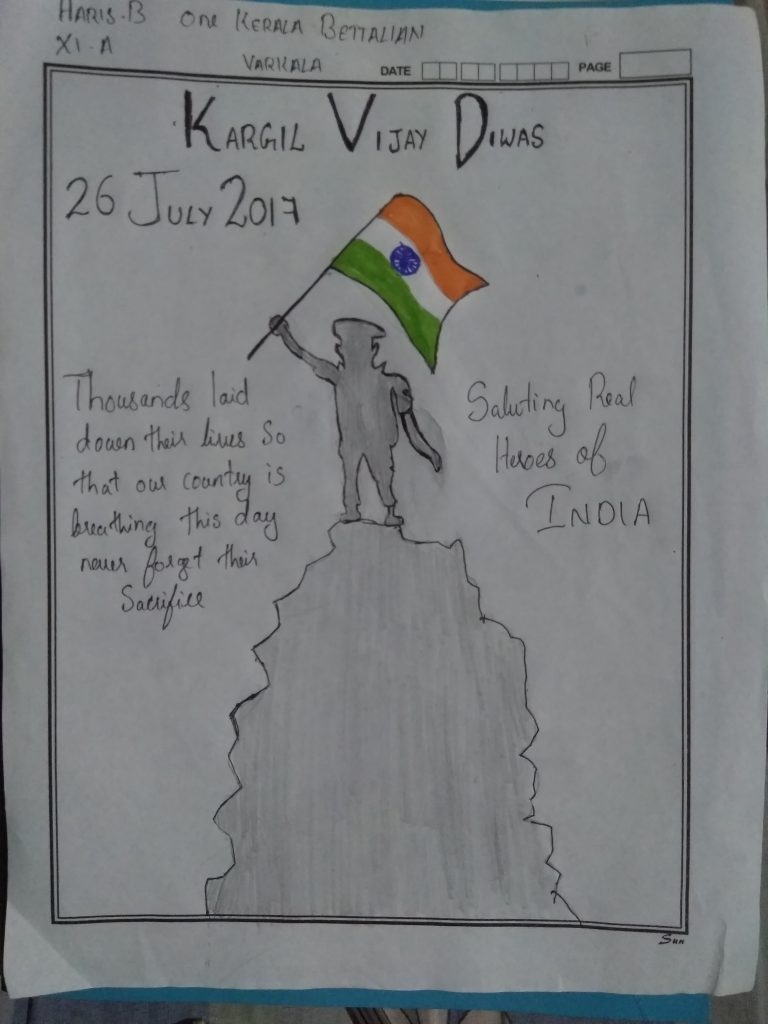 HARIS.B ONE KERALA BETTALIAN
XI-A
VARKALA DATE PAGE
KARGIL VIJAY DIWAS
26 JULY 2017
Thousands laid
down their lives So
that our country is
breathing this day
never forget their
Sacrifice
Saluting Real
Heroes of
INDIA
Sun